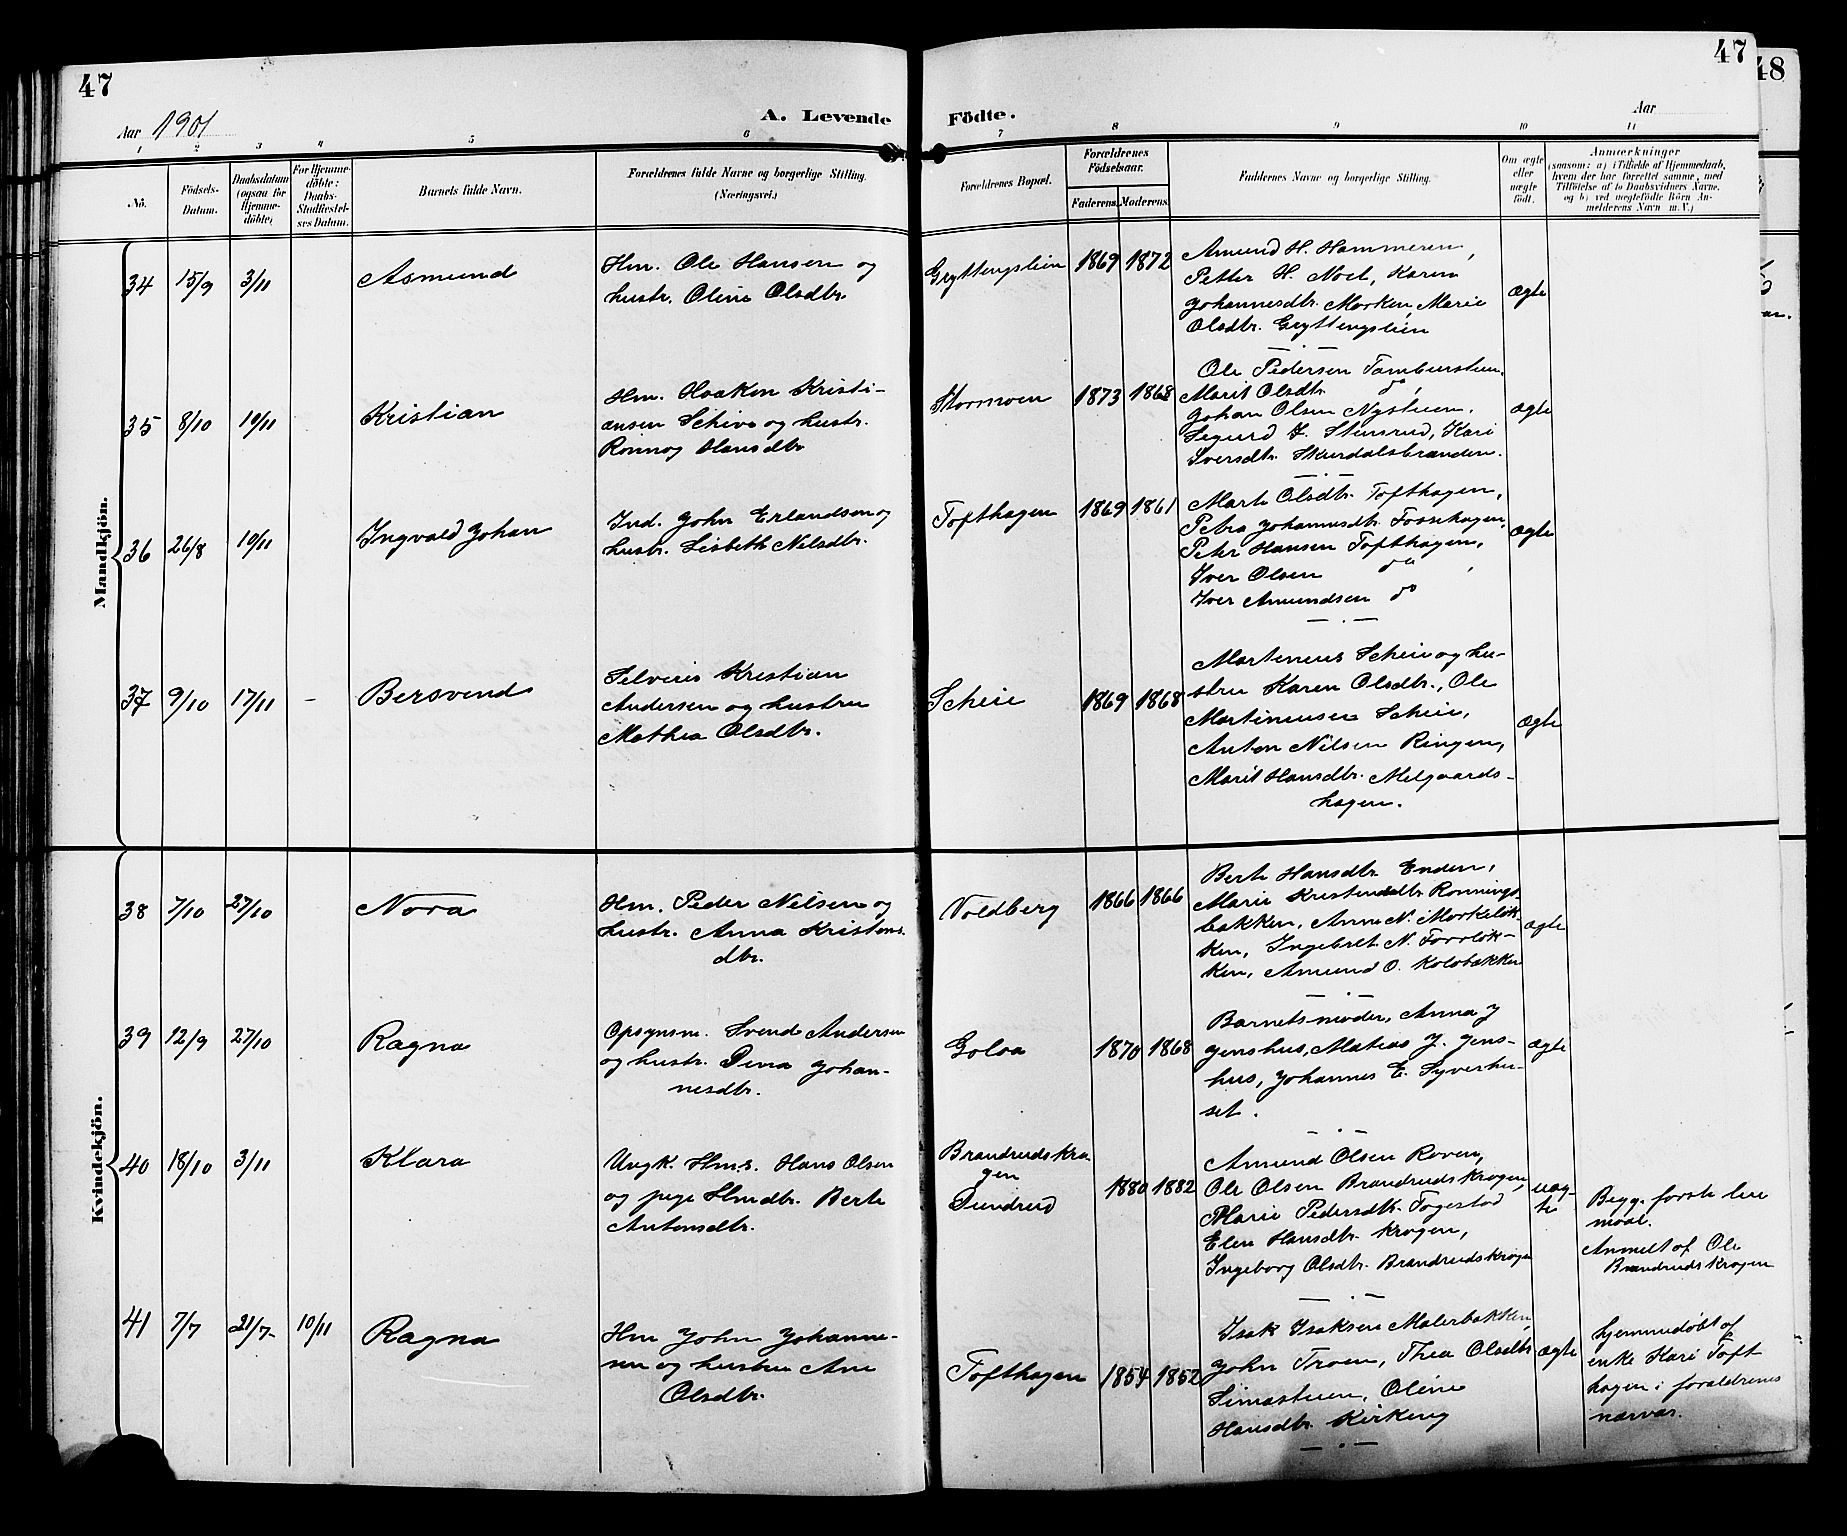 47
47
48
Aar 1901
A. Levende
Födte.
Aar
1 2 3 4 5 6 7 8 9 10 11
Nô.
Födsels-
Datum.
Daabsdatum
(ogsaa for
Hjemme-
döbte)
For Hjemme-
döbte:
Daabs-
Stadfæstel-
ses Datum.
Barnets fulde Navn.
Forældrenes fulde Navne og borgerlige Stilling.
(Næringsvei.)
Forældrenes Bopæl.
Forældrenes
Födselsaar.
Faderens.
Moderens.
Faddernes Navne og borgerlige Stilling.
Om ægte
eller
uægte
födt.
Anmærkninger
(saasom: a) i Tilfælde af Hjemmedaab,
hvem der har forrettet samme, med
Tilföielse af to Daabsvidners Navne,
og b) ved uægtefödte Börn An-
melderens Navn m. V.)
Mandkjön.
34 15/9 3/11 Asmund
Hm. Ole Hansen og
hustr. Oline Olsdtr.
Gryttengslien 1869 1872
Amund H. Hammeren,
Petter H. Noel, Karen
Johannesdtr. Morken, Marie
Olsdtr. Gryttengslien
ægte
35 8/10 10/11 Kristian
Hm. Haaken Kristi-
ansen Schive og hustr.
Rønnog Hansdtr
Stormoen 1873 1868
Ole Pedersen Tamburstuen,
Marit Olsdtr. do,
Johan Olsen Nystuen,
Segurd J. Stensrud, Kari
Iversdtr. Skurdalsbranden.
ægte
36 26/8 10/11 Ingvald Johan
Ind. John Erlandsen og
hustr. Lisbeth Nilsdtr.
Tofthagen 1869 1861
Marte Olsdtr. Tofthagen,
Petra Johannesdtr. Fossehagen,
Peter Hansen Tofthagen,
Iver Olsen do,
Iver Amundsen do
ægte
37 9/10 17/11 - Bersvend
Selveier Kristian
Andersen og hustru
Mathea Olsdtr.
Scheie 1869 1868
Martenius Scheie og hu-
stru Karen Olsdtr., Ole
Martiniusen Scheie,
Anton Nilsen Ringen,
Marit Hansdtr. Melgaards-
hagen.
ægte
Kvindekjön.
38 7/10 27/10 Nora
Hm. Peder Nilsen og
hustr. Anna Kristens
dtr.
Voldberg 1866 1866
Berte Hansdtr. Enden,
Marie Kristensdtr. Rønnings-
bakken, Anne N. Mørkeløk-
ken, Ingebret N. Forrløk-
ken, Amund O. Kolobakken
ægte
39 12/9 27/10 Ragna
Opsynsm. Svend Andersen
og hustr. Dina Johan-
nesdtr.
Goloa 1870 1868
Barnets moder, Anna J
Jenshus, Matias J. Jens-
hus, Johannes E. Syverhu-
set.
ægte
40 18/10 3/11 Klara
Ungk. Hm.s. Hans Olsen
og pige Hmdtr. Berte
Antonsdtr.
Brandrudskro-
gen
Sundrud
1880 1882
Amund Olsen Roven,
Ole Olsen Brandrudskrogen,
Marie Pedersdtr. Fogestad
Elen Hansdtr. Krogen,
Ingeborg Olsdtr. Brandrudskrogen
uæg-
te
Begg. første lei
maal.
Anmelt af Ole
Brandrudskrogen
41 7/7 21/7 10/11 Ragna
Hm John Johanne-
sen og hustru Ane
Olsdtr.
Tofthagen 1854 1852
Isak Isaksen Malerbakken,
John Troen, Thea Olsdtr
Simastuen, Oline
Hansdtr. Kirkeng
ægte
hjemmedøbt af
enke Kari Toft-
hagen i foraldrenes
nærvær.